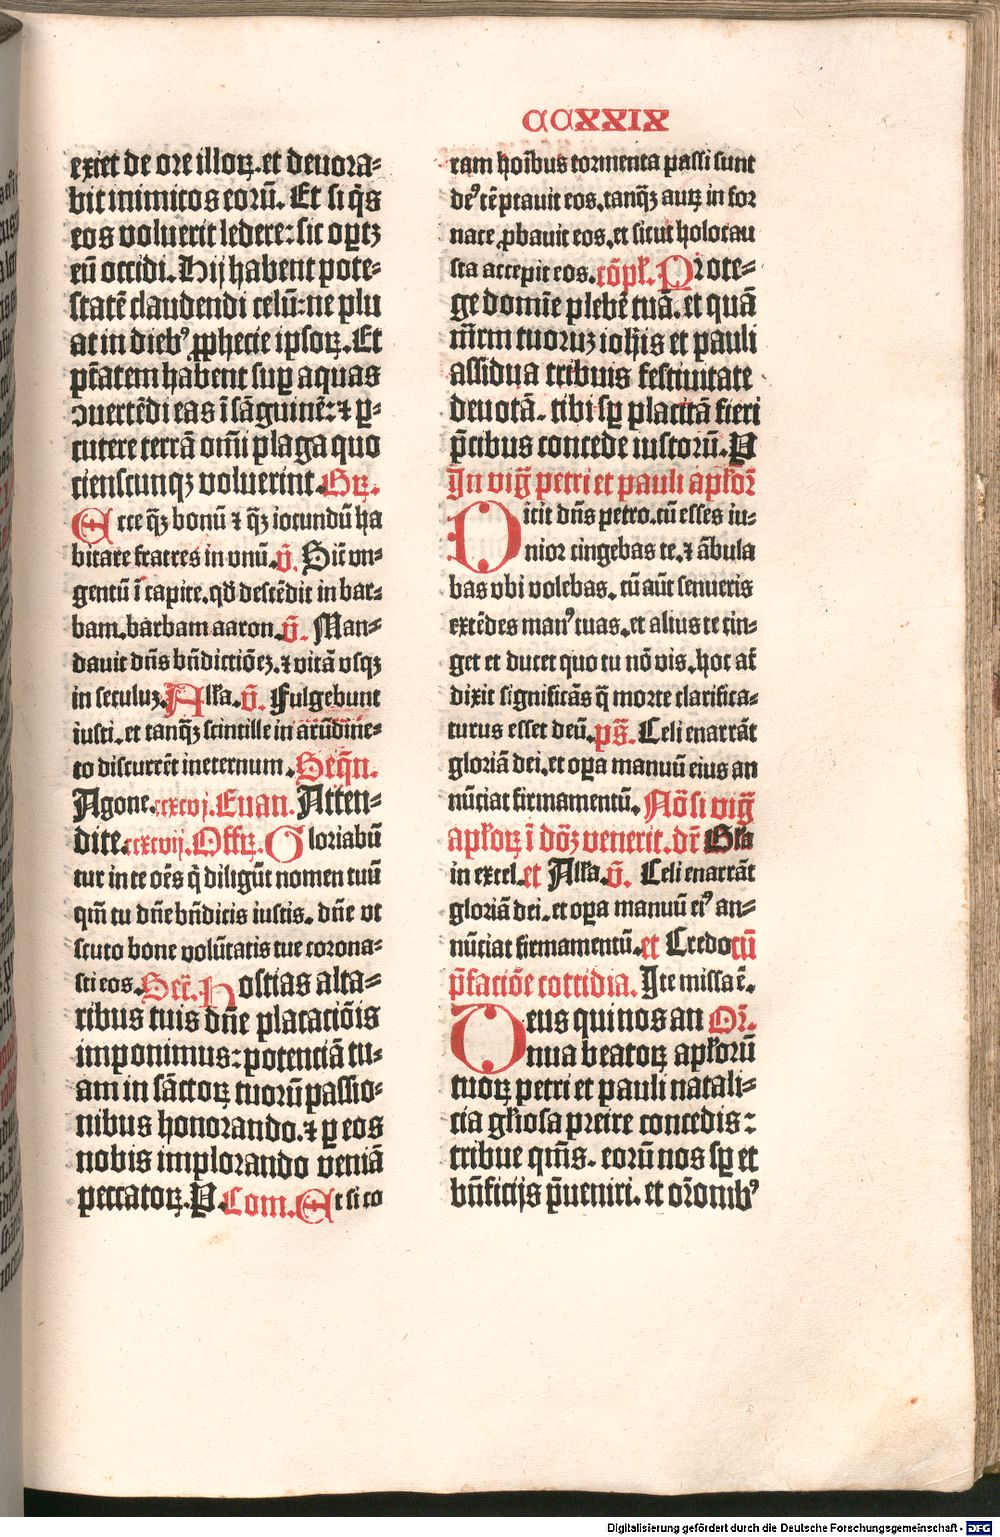 CCXXIX
exiet de ore illoꝝ.et deuora⸗
bit inimicos eorū. Et si q̄s
eos voluerit ledere: sic oꝑtꝫ
eū occidi. Hij habent pote⸗
statē claudendi celū: ne plu
at in dieb⁹ ꝓphecie ipsoꝝ. Et
ptātem habent suꝑ aquas
ↄuertēdi eas ī sāguinē: ⁊ ꝑ⸗
cutere terrā om̄i plaga quo
cienscunqꝫ voluerint. Gꝝ.
Ecce q̄ꝫ bonū ⁊ q̄ꝫ iocundū ha
bitare fratres in vnū. v̄. Sic̄ vn⸗
gentū ī capite.qd̓ descēdit in bar⸗
bam.barbam aaron. v̄. Man⸗
dauit dn̄s bn̄dictiōeꝫ.⁊ vitā vsqꝫ
in seculuꝫ. All̓a. v̄. Fulgebunt
iusti.et tanq̄ꝫ scintille in arūdine⸗
to discurrēt ineternum. Seq̄n.
Agone. ccxcvj. Euan. Atten⸗
dite. ccxcvij. Offꝝ. Gloriabū
tur in te oēs q̄ diligūt nomen tuū
qm̄ tu dn̄e bn̄dicis iustis. dn̄e vt
scuto bone volūtatis tue corona⸗
sti eos. Sec̄. Hostias alta⸗
ribus tuis dn̄e placaciōis
imponimus: potenciā tu⸗
am in sāctoꝝ tuorū passio⸗
nibus honorando.⁊ ꝑ eos
nobis implorando veniā
peccatoꝝ. P Com. Et si co
ram hoībus tormenta passi sunt
de⁹ tēptauit eos.tanq̄ꝫ auꝝ in for
nace ꝓbauit eos.et sicut holocau
sta accepit eos. cōpl̓. Prote⸗
ge domīe plebē tuā.et quā
mr̄m tuoruꝫ ioh̓is et pauli
assidua tribuis festiuitate
deuotā. tibi sꝑ placitā fieri
p̄cibus concede iustorū. P
In vig̓ petri et pauli apl̓oꝝ
Dicit dn̄s petro.cū esses iu⸗
nior cingebas te.⁊ ābula
bas vbi volebas. cū aūt senueris
extēdes man⁹ tuas.et alius te cin⸗
get et ducet quo tu nō vis.hoc at̄
dixit significās q̄ morte clarifica⸗
turus esset deū. ps̄. Celi enarrāt
gloriā dei.et oꝑa manuū eius an
nūciat firmamentū. Nō si vig̓
apl̓oꝝ ī dōꝫ venerit. dr̄ Gl̓a
in excel. et All̓a. v̄. Celi enarrāt
gloriā dei.et oꝑa manuū ei⁹ an⸗
nūciat firmamentū. et Credo cū
p̄faciōe cottidia. Ite missa ē.
Deus qui nos an Or̄.
nua beatoꝝ apl̓orū
tuoꝝ petri et pauli natali⸗
cia gl̓iosa preire concedis:
tribue qm̄s. eorū nos sꝑ et
bn̄ficijs p̄ueniri. et orōnib⁹
Digitalisierung gefördert durch die Deutsche Forschungsgemeinschaft - DFG